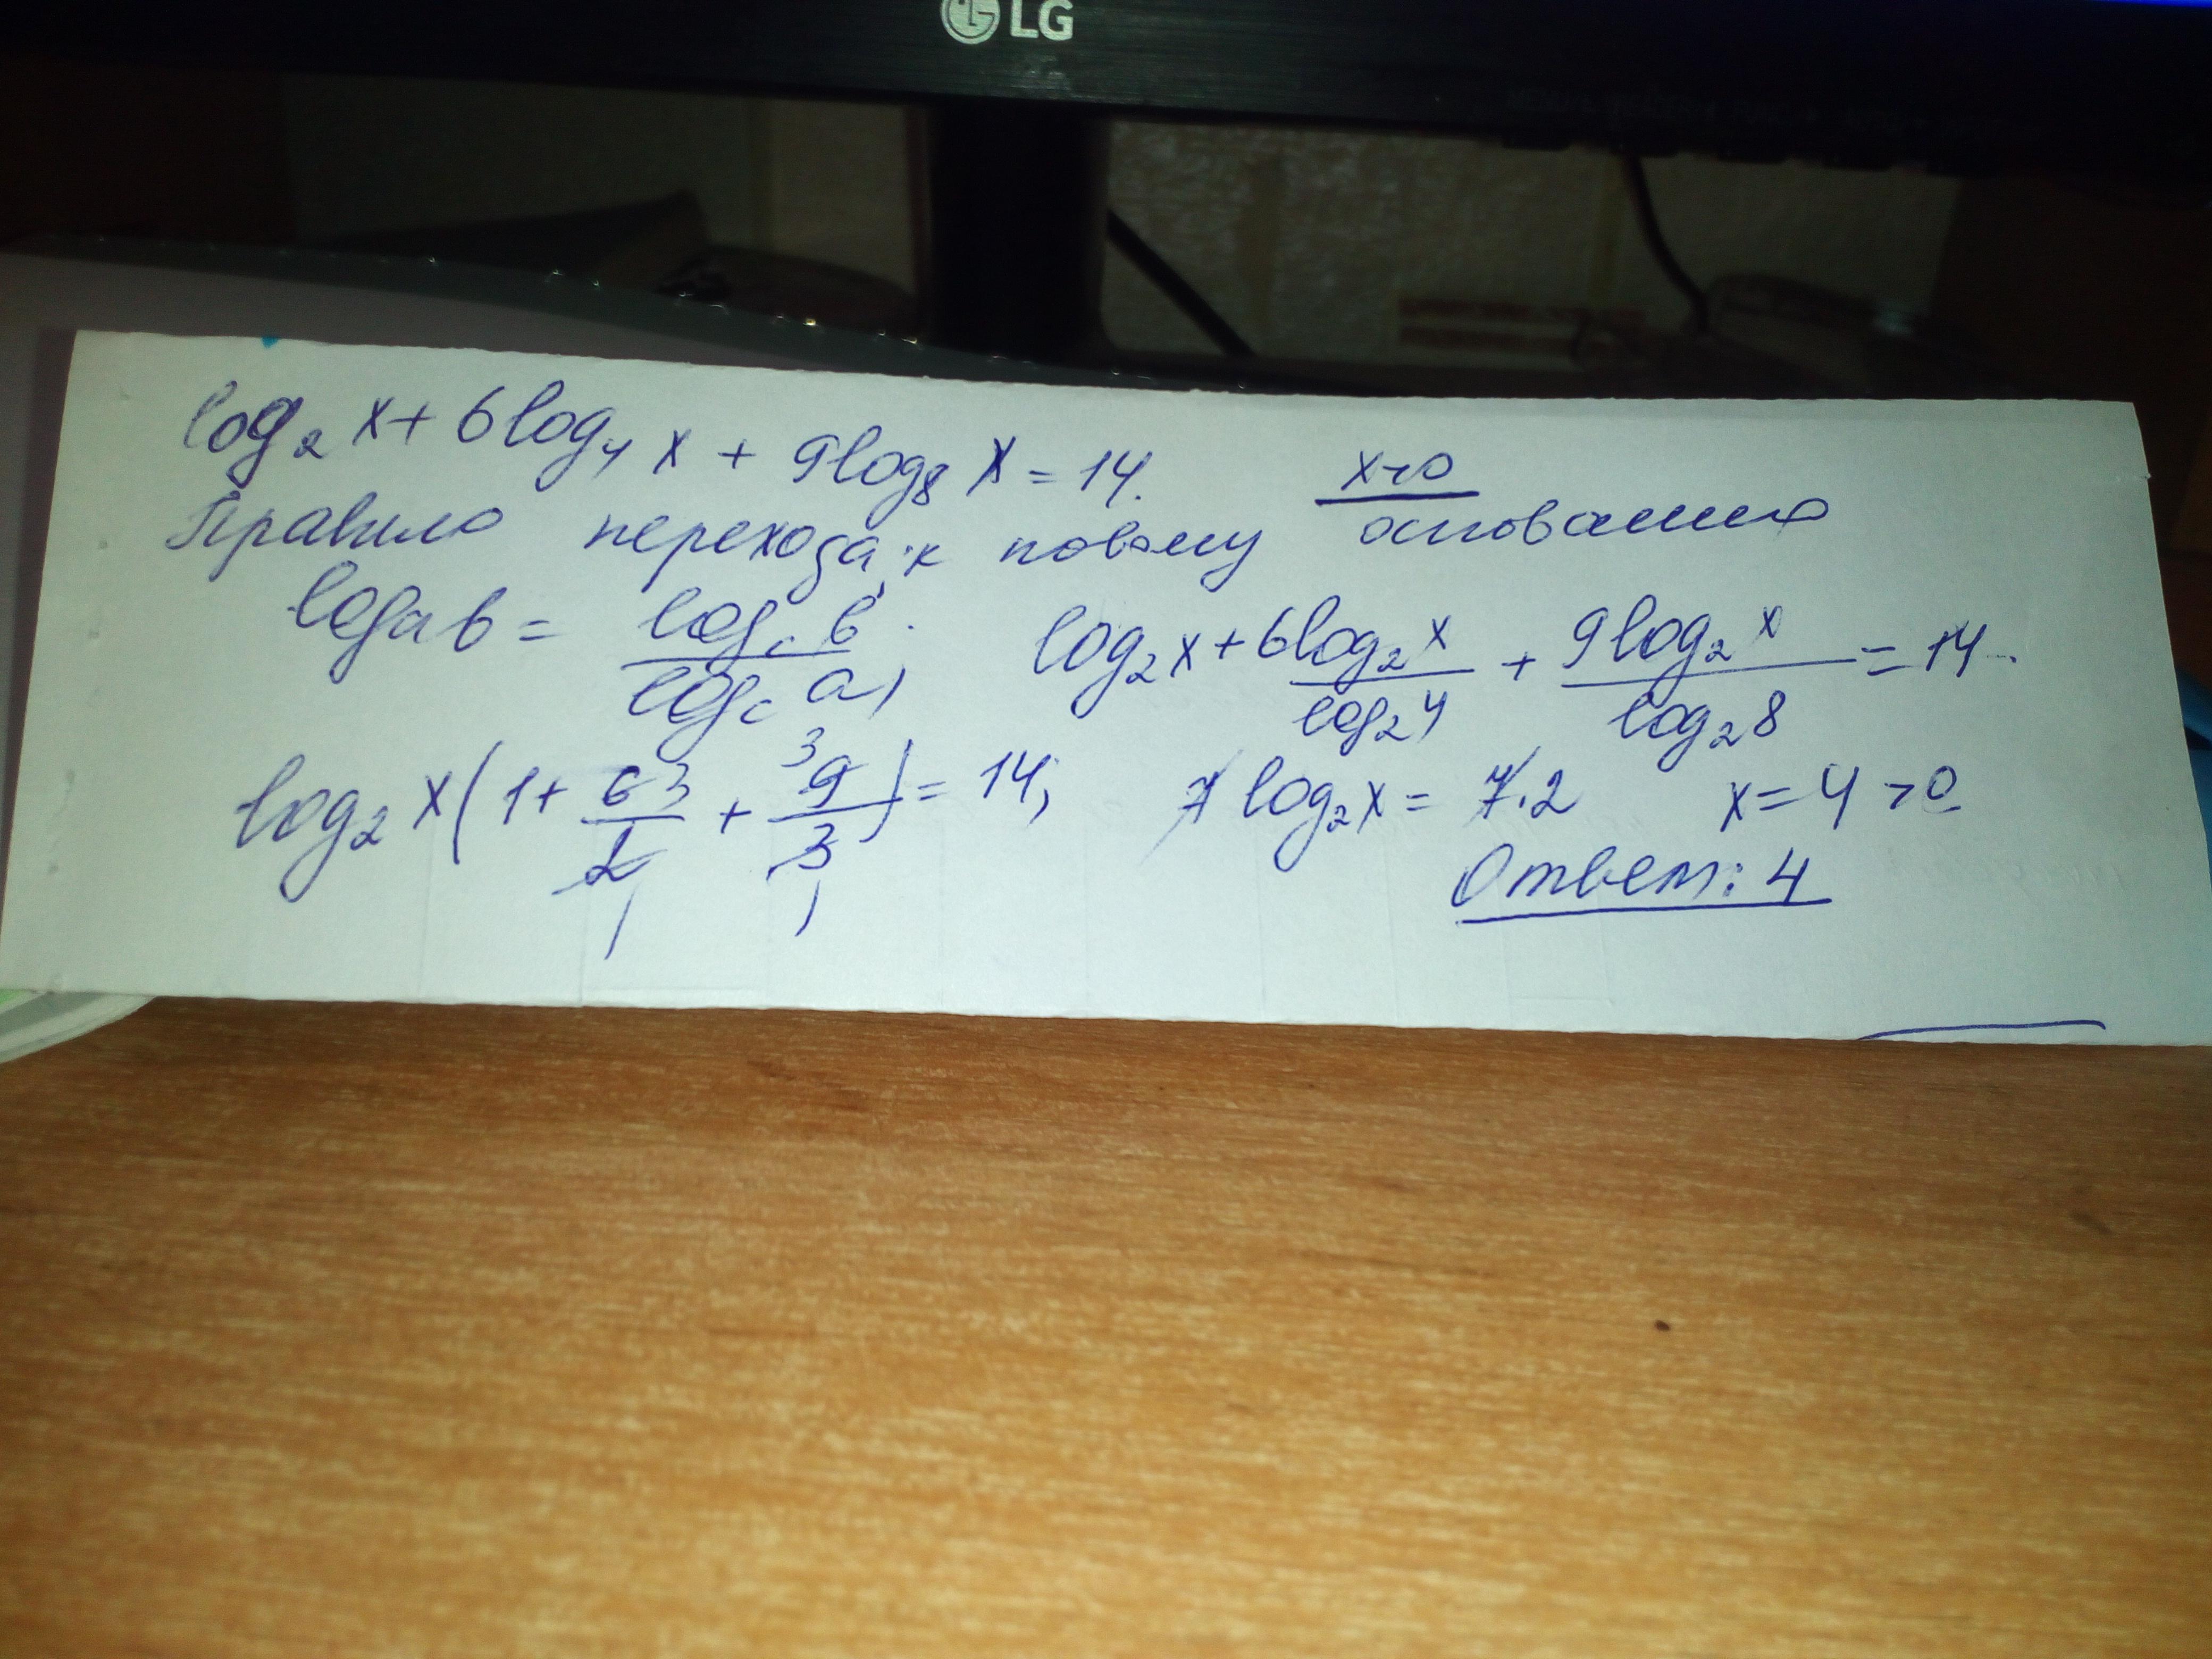 LG
log₂ x + 6log₄ x + 9log₈ x = 14. x>0
Правило перехода к новому основанию
logₐb = log_c b / log_c a, log₂x + 6log₂x / log₂4 + 9log₂x / log₂8 = 14.
log₂ x(1 + 6 3 / 2 1 + 3 9 / 3 1) = 14; 7 log₂x = 7·2 x = 4 > 0
Ответ: 4